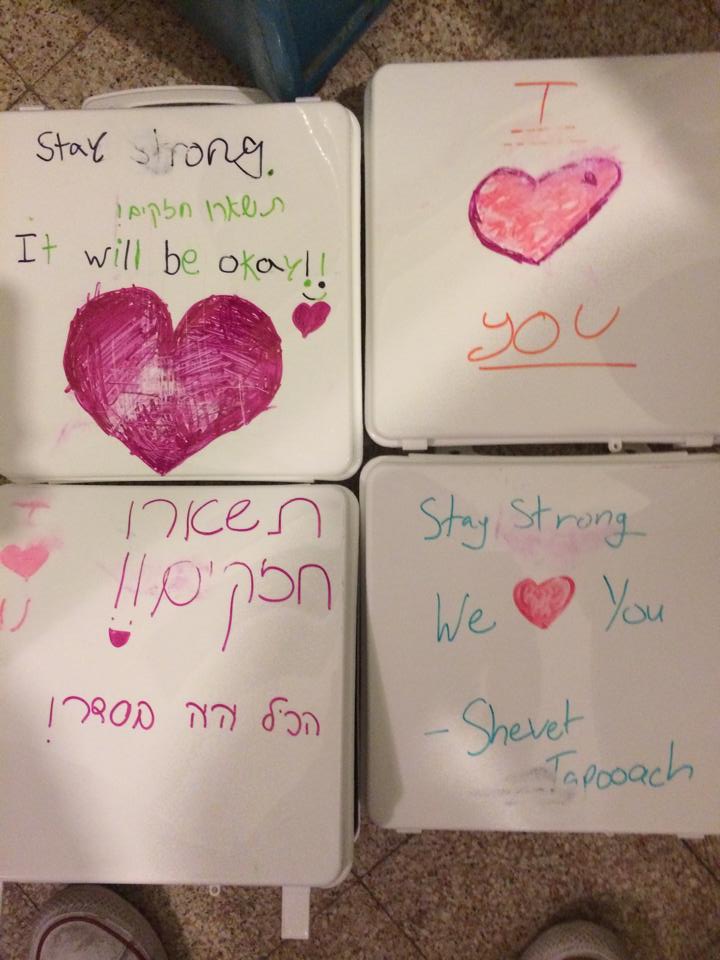 Stay strong.
תשארו חזקים!
It will be okay!!
I
YOU
תשארו
חזקים!!
הכל יהיה בסדר!
Stay Strong
We You
- Shevet
Tapooach